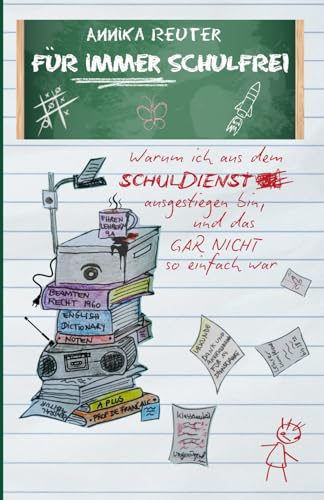 ANNIKA REUTER
FÜR IMMER SCHULFREI
Warum ich aus dem
SCHULDIENST
ausgestiegen bin,
und das
GAR NICHT
so einfach war
EHREN
LEHRER
BEAMTEN
RECHT 1960
ENGLISH
DICTIONARY
NOTEN
A PLUS
PROF DE FRANÇAIS
URKUNDE